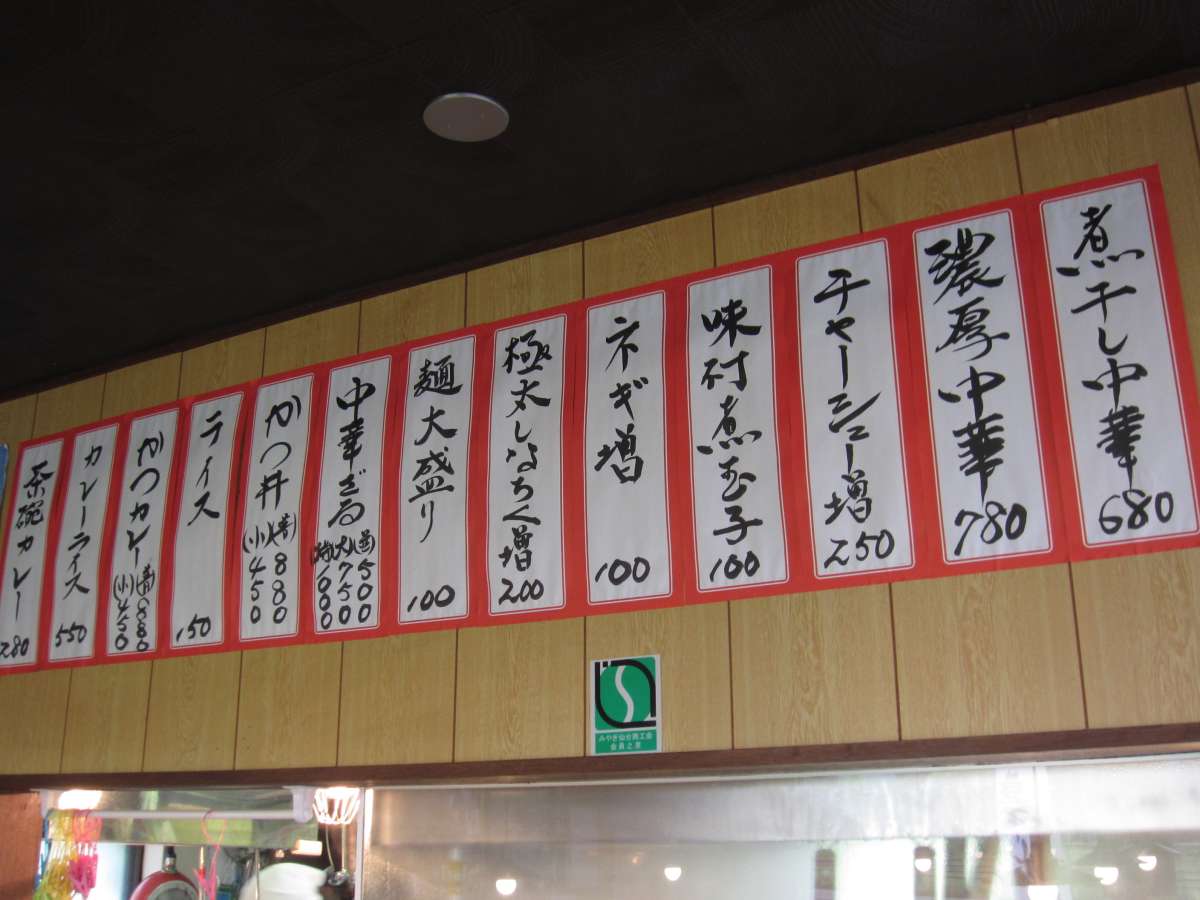 煮干し中華 680
濃厚中華 780
チャーシュー増 250
味付煮玉子 100
ネギ増 100
極太しなちく増 200
麺大盛り 100
中華ざる
(普)500
(大)750
(特)1000
かつ丼
(普)880
(小)450
ライス 150
かつカレー
(普)880
(小)450
カレーライス 550
茶碗カレー 280
みやぎ仙台商工会
会員之章